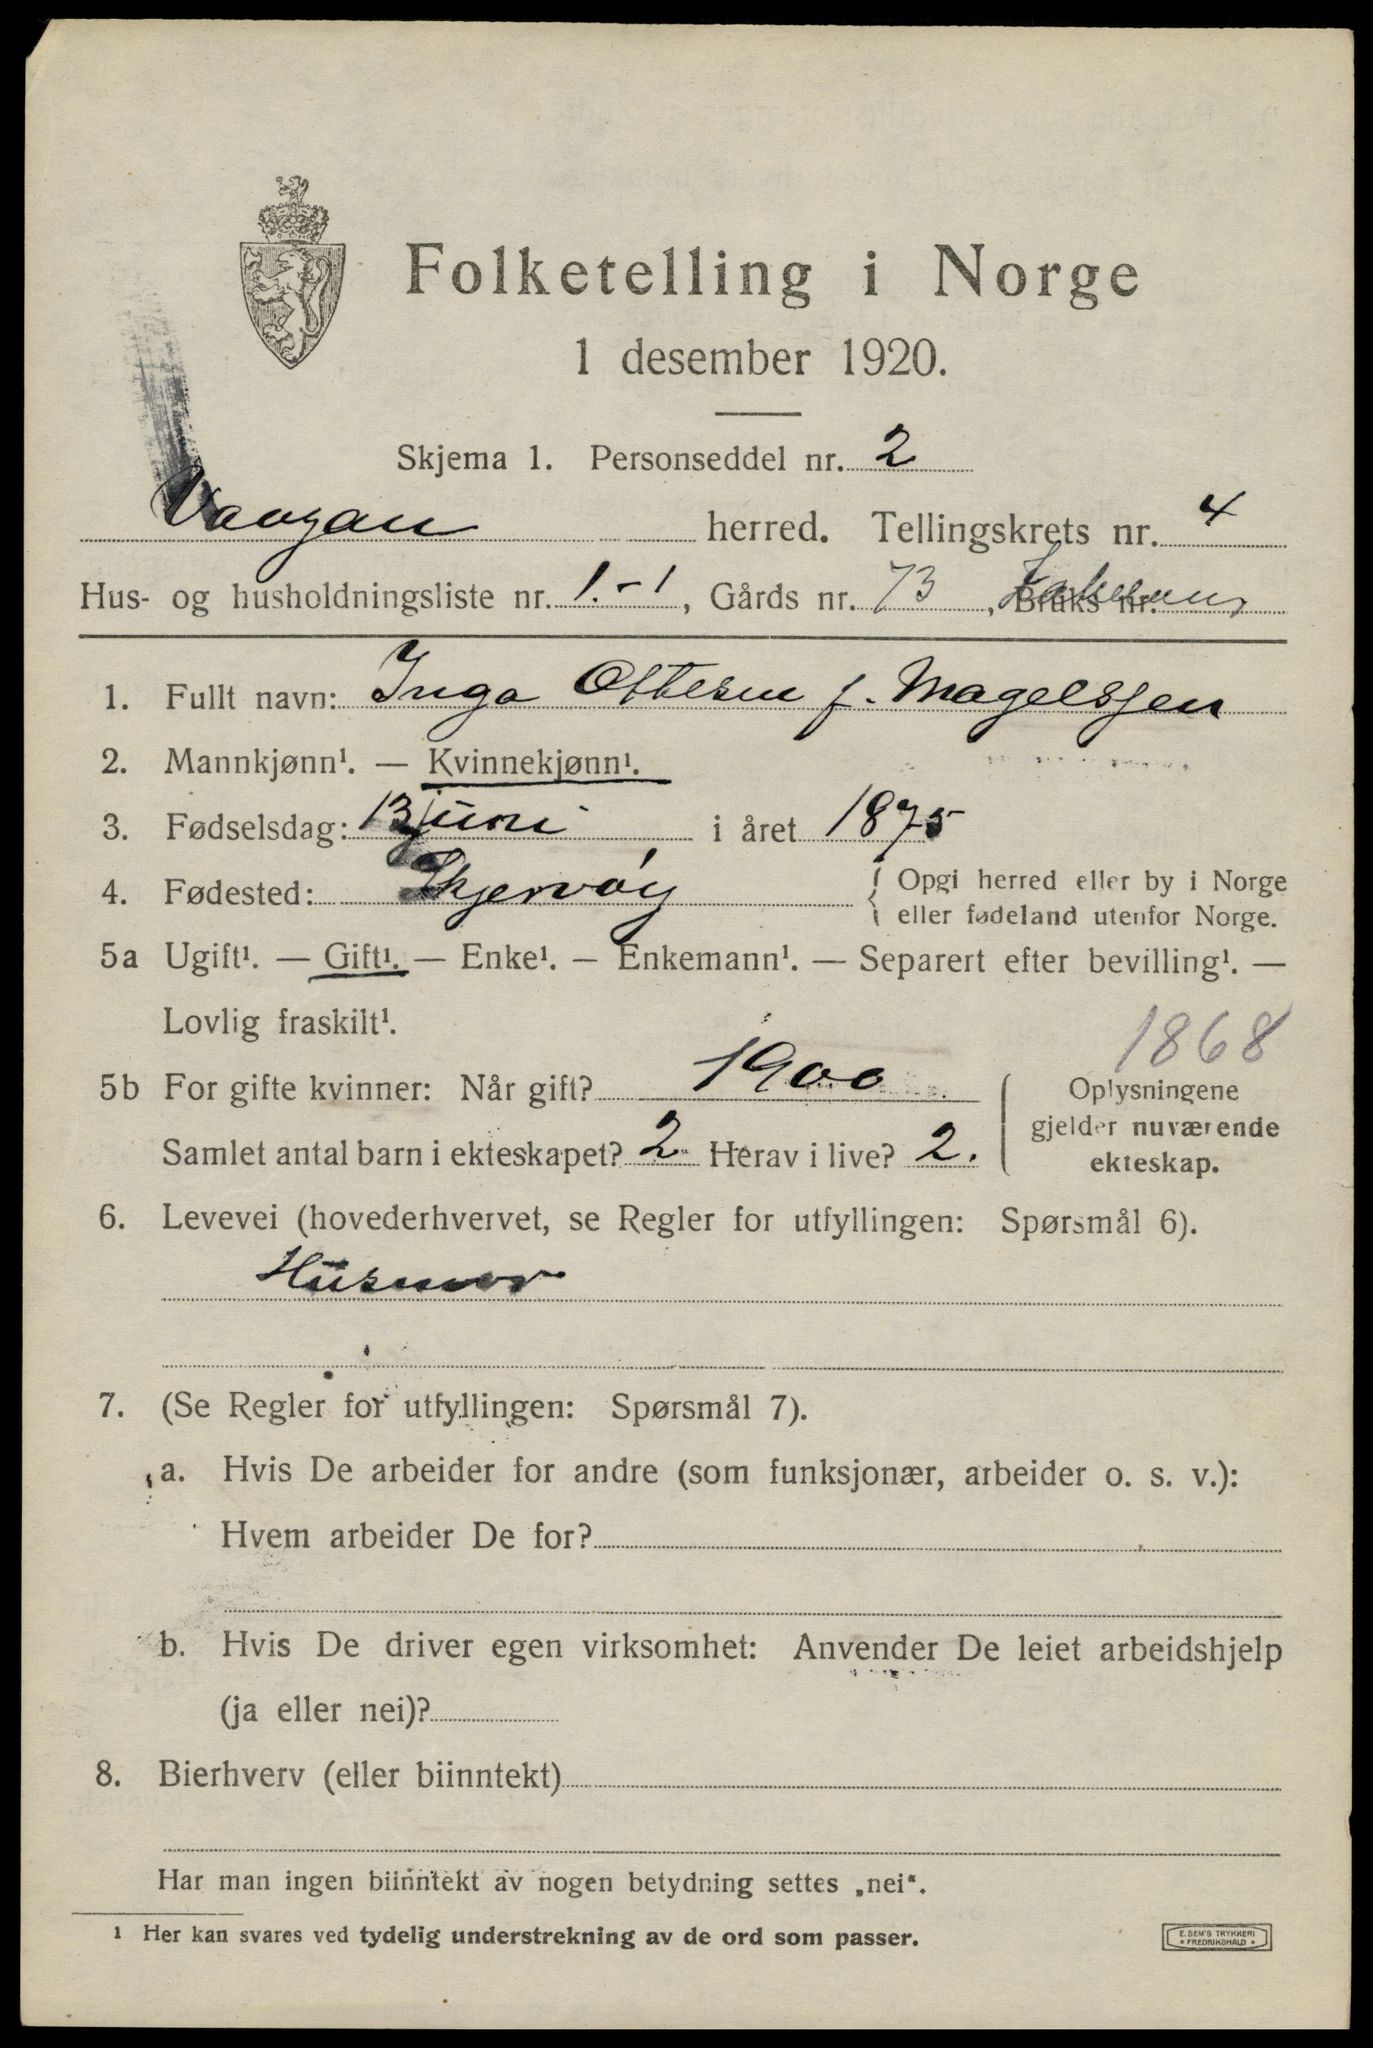 Folketelling i Norge
1 desember 1920.
Skjema 1. Personseddel nr. 2
Vaagan herred. Tellingskrets nr. 4
Hus- og husholdningsliste nr. 1.-1, Gårds nr. 73, Bruks nr.
1. Fullt navn: Inga Ottesen f. Magelssen
2. Mannkjønn¹. — Kvinnekjønn¹.
3. Fødselsdag: 13 juni i året 1875
4. Fødested: Skjervöy { Opgi herred eller by i Norge
eller fødeland utenfor Norge.
5a Ugift¹. — Gift¹. — Enke¹. — Enkemann¹. — Separert efter bevilling¹. —
Lovlig fraskilt¹.
1868
5b For gifte kvinner: Når gift? 1900
Samlet antal barn i ekteskapet? 2 Herav i live? 2.
Oplysningene
gjelder nuværende
ekteskap.
6. Levevei (hovederhvervet, se Regler for utfyllingen: Spørsmål 6).
Husmor
7. (Se Regler for utfyllingen: Spørsmål 7).
a. Hvis De arbeider for andre (som funksjonær, arbeider o. s. v.):
Hvem arbeider De for?
b. Hvis De driver egen virksomhet: Anvender De leiet arbeidshjelp
(ja eller nei)?
8. Bierhverv (eller biinntekt)
Har man ingen biinntekt av nogen betydning settes „nei“.
1 Her kan svares ved tydelig understrekning av de ord som passer.
E. SEM'S TRYKKERI
FREDRIKSHALD